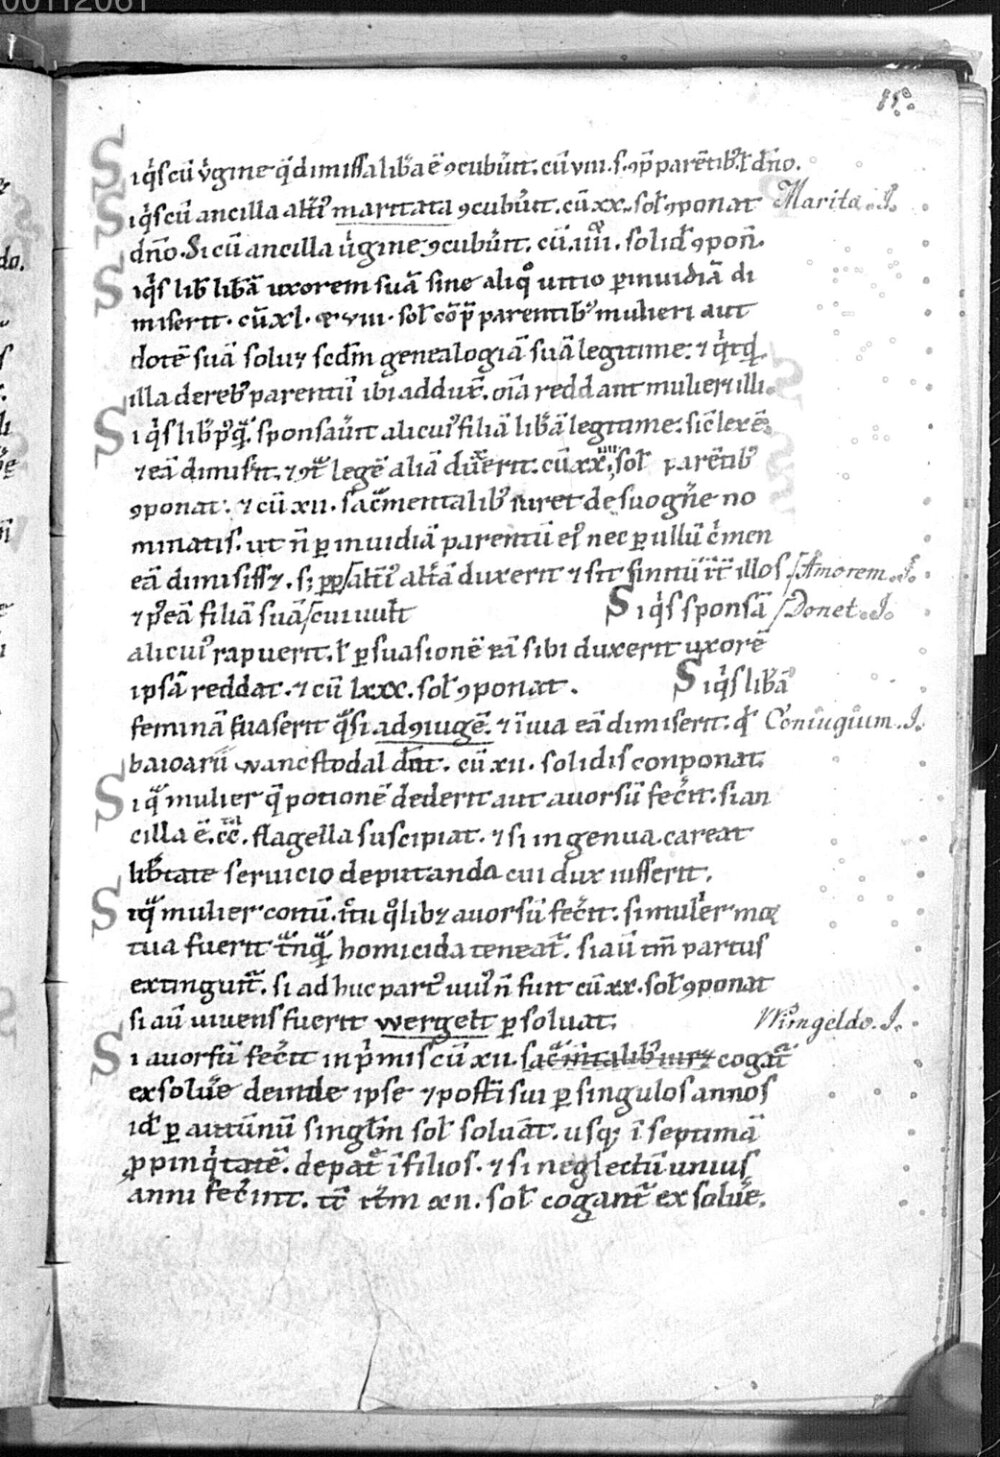 00112061
15.
Siq̇s cū v̇gine q̄ dimissa lib̄a ē ꝯcubūt. cū viii. s. ꝯp̄ parētib; ł dn̄o.
Siq̇s cū ancilla alt̄i' maritata ꝯcubūt. cū xx. soł ꝯponat Marita. J.
dn̄o. Si cū ancilla v̇gine ꝯcubūt. cū iiii. solid ꝯpon̄.
Siq̇s lib̄ lib̄ā uxorem suā sine aliqͦ uitio ꝑ inuidiā di
miserit. cū xl. & viii. soł cōp̄ parentib; mulieri aut
dotē suā soluꝫ scd̄m genealogiā suā legitime. ⁊ q̇tq̇d
illa de reb; parentū ibi addux̄. oīa reddant mulieri illi.
Siq̇s lib̄ sponsaūit alicui' filiā lib̄ā legitime. sic̄ lex ē
⁊ eā dimisit. ⁊ ꝯt̄ legē aliā dux̄erit. cū xxiiii. soł parētib;
ꝯponat. ⁊ cū xii. sac̄mentalib; iuret de suo gn̄e no
minatis. ut n̄ ꝑ inuidiā parentū ei' nec ꝑ ullū c̄men
eā dimisissꝫ. s; alt̄i' alt̄ā duxerit ⁊ sit finitū int̄ illos /Amorem. J.
⁊ p' eā filiā suā /cui uult Siq̇s sponsā /Donet. J.
alicui' rapuerit. ł ꝑ suasionē eā sibi duxerit uxorē
ipsā reddat. ⁊ cū lxxx. soł ꝯponat. Siq̇s lib̄ā
feminā suaserit q̄si ad ꝯiugē. ⁊ ī uia eā dimiserit. qd̄ Coniugium. J.
baioarii wancstodal dn̄t. cū xii. solidis conponat.
Siq̄ mulier q̄ potionē dederit aut auorsū fec̄it. si an
cilla ē. cc. flagella suscipiat. ⁊ si ingenua. careat
lib̄tate seruicio deputanda cui dux iusserit.
Siq̄ mulier' ictu qͦlibꝫ auorsū fec̄it. si mulier mor
tua fuerit tāq̄ homicida teneat̄. si aū tm̄ partus
extinguit̄. si adhuc part' uiu' n̄ fuit cū xx. soł ꝯponat
si aū uiuens fuerit wergelt ꝑsoluat. Wirngeldo. J.
Si auorsū fec̄it inp̄mis cū xii. soł cogat̄
exsoluē deinde ipse ⁊ post̄i sui ꝑ singulos annos
id ꝑ autūnū singłm soł soluāt. usq; ī septimā
ꝓpinq̇tatē. de patͤ ī filios. ⁊ si neglectū unius
anni fec̄int. tc̄ it̄m xii. soł cogant̄ exsoluē.